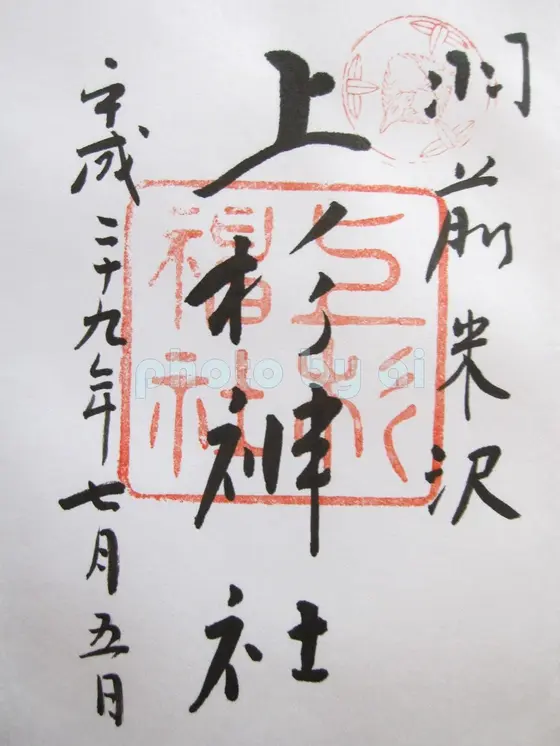 羽前米沢
上杉神社
平成二十九年七月五日
上杉神社
photo by ai